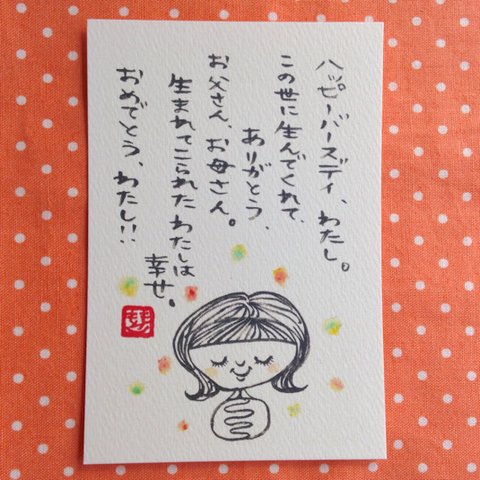 ハッピーバースディ、わたし。
この世に生んでくれて、
ありがとう、
お父さん、お母さん。
生まれてこられたわたしは
幸せ。
おめでとう、わたし!!